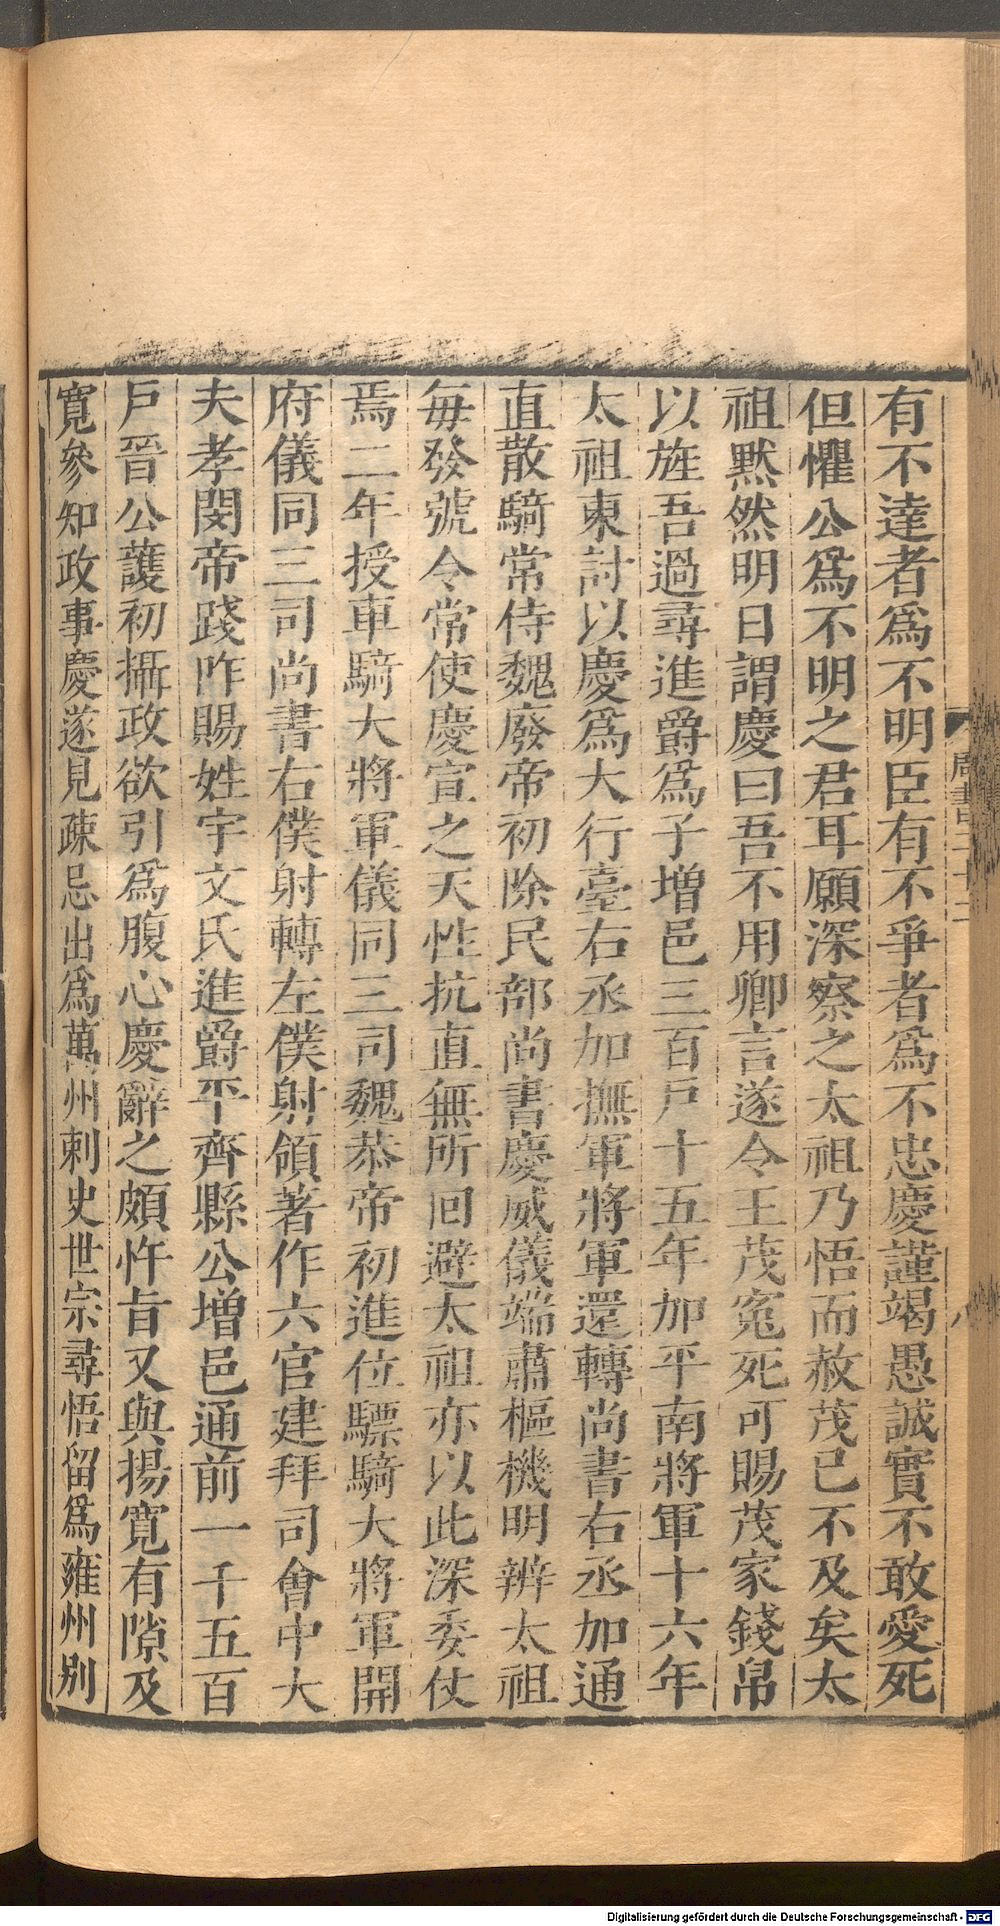 有不達者爲不明臣有不爭者爲不忠慶謹竭愚誠實不敢愛死
但懼公爲不明之君耳願深察之太祖乃悟而赦茂已不及矣太
祖默然明日謂慶曰吾不用卿言遂令王茂冤死可賜茂家錢帛
以旌吾過尋進爵爲子增邑三百戸十五年加平南將軍十六年
太祖東討以慶爲大行臺右丞加撫軍將軍還轉尚書右丞加通
直散騎常侍魏廢帝初除民部尚書慶威儀端肅樞機明辨太祖
每發號令常使慶宣之天性抗直無所回避太祖亦以此深委仗
焉二年授車騎大將軍儀同三司魏恭帝初進位驃騎大將軍開
府儀同三司尚書右僕射轉左僕射領著作六官建拜司會中大
夫孝閔帝踐阼賜姓宇文氏進爵平齊縣公增邑通前一千五百
戸晉公護初攝政欲引爲腹心慶辭之頗忤旨又與揚寬有隙及
寬參知政事慶遂見疎忌出爲萬州刺史世宗尋悟留爲雍州别
周書 二十二
八
Digitalisierung gefördert durch die Deutsche Forschungsgemeinschaft - DFG